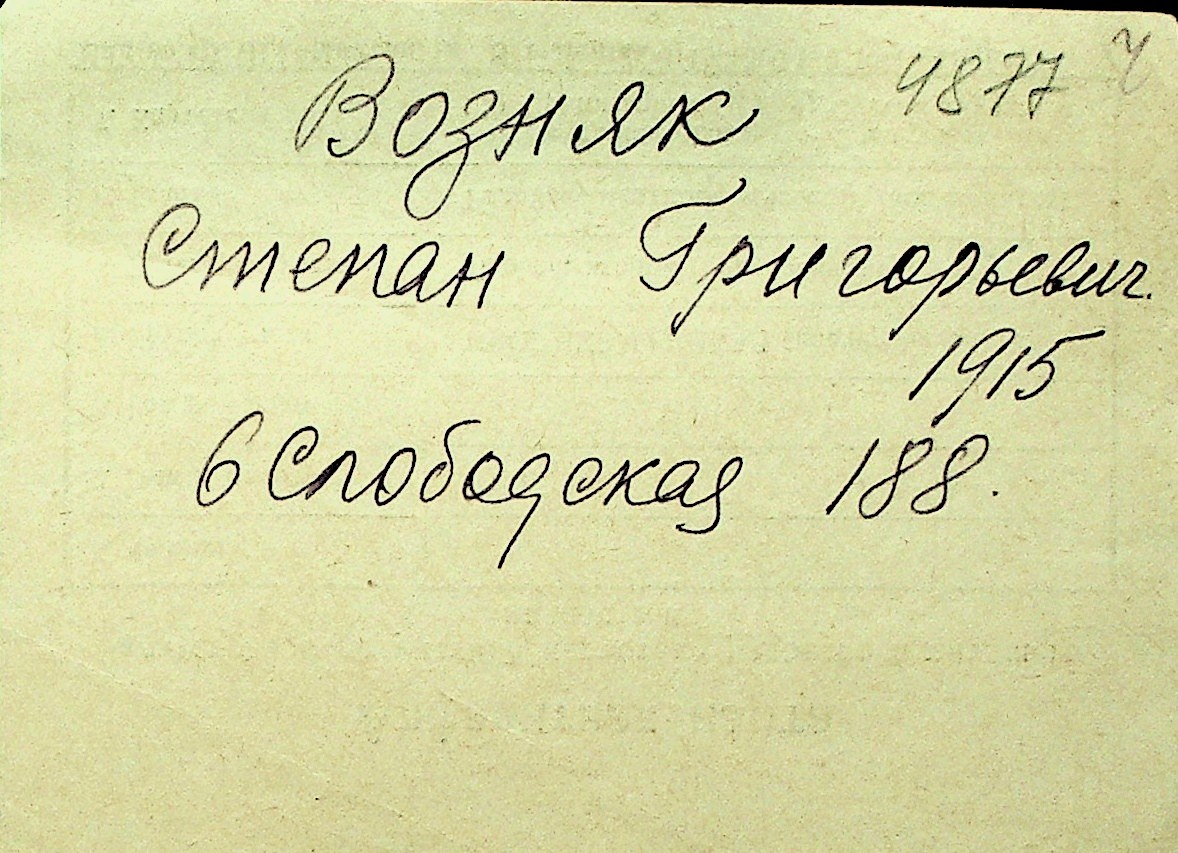 4877 ч
Возняк
Степан Григорьевич.
1915
6 Слободская 188.